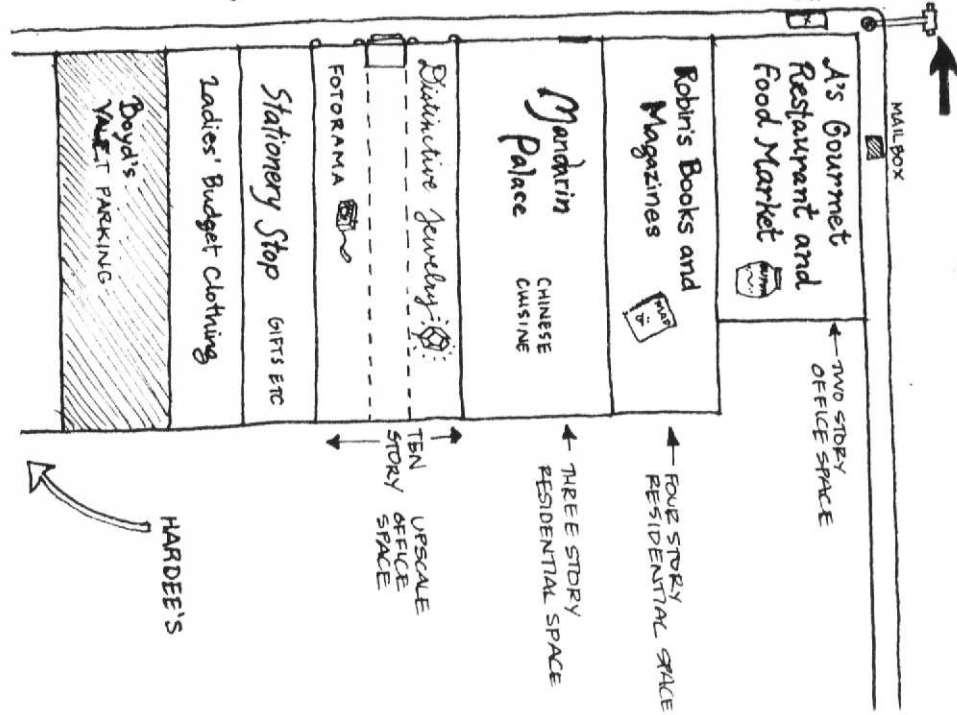 MAILBOX
A's Gourmet
Restaurant and
Food Market
TWO STORY
OFFICE SPACE
Robin's Books and
Magazines
MAP
FOUR STORY
RESIDENTIAL SPACE
Mandarin
Palace
CHINESE
CUISINE
THREE STORY
RESIDENTIAL SPACE
Distinctive Jewelry
FOTORAMA
TEN
STORY
UPSCALE
OFFICE
SPACE
Stationery Stop
GIFTS ETC
Ladies' Budget Clothing
Boyd's
VALET PARKING
HARDEE'S